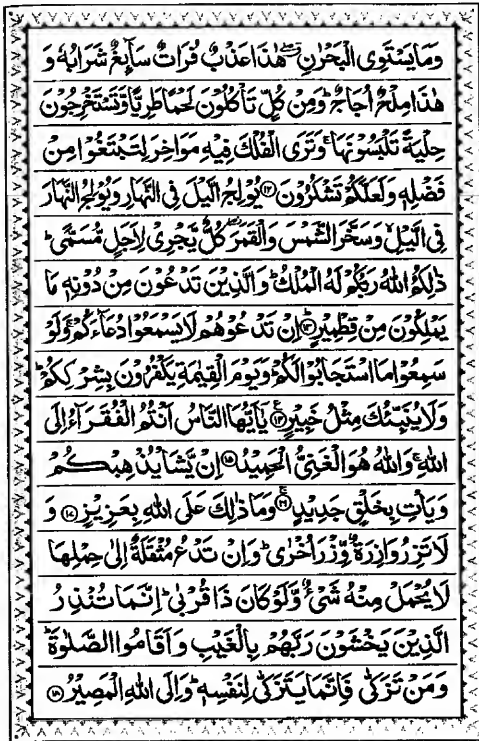 وَمَا يَسْتَوِى الْبَحْرٰنِ ۖ هٰذَا عَذْبٌ فُرَاتٌ سَآئِغٌ شَرَابُهٗ وَ
هٰذَا مِلْحٌ اُجَاجٌ ؕ وَمِنْ كُلٍّ تَاْكُلُوْنَ لَحْمًا طَرِيًّا وَّتَسْتَخْرِجُوْنَ
حِلْيَةً تَلْبَسُوْنَهَا ۚ وَتَرَى الْفُلْكَ فِيْهِ مَوَاخِرَ لِتَبْتَغُوْا مِنْ
فَضْلِهٖ وَلَعَلَّكُمْ تَشْكُرُوْنَ ﴿۱۲﴾ يُوْلِجُ الَّيْلَ فِى النَّهَارِ وَيُوْلِجُ النَّهَارَ
فِى الَّيْلِ ۙ وَسَخَّرَ الشَّمْسَ وَالْقَمَرَ ۖ كُلٌّ يَّجْرِىْ لِاَجَلٍ مُّسَمًّى ؕ
ذٰلِكُمُ اللّٰهُ رَبُّكُمْ لَهُ الْمُلْكُ ؕ وَالَّذِيْنَ تَدْعُوْنَ مِنْ دُوْنِهٖ مَا
يَمْلِكُوْنَ مِنْ قِطْمِيْرٍ ؕ ﴿۱۳﴾ اِنْ تَدْعُوْهُمْ لَا يَسْمَعُوْا دُعَآءَكُمْ ۚ وَلَوْ
سَمِعُوْا مَا اسْتَجَابُوْا لَكُمْ ؕ وَيَوْمَ الْقِيٰمَةِ يَكْفُرُوْنَ بِشِرْكِكُمْ ؕ
وَلَا يُنَبِّئُكَ مِثْلُ خَبِيْرٍ ﴿۱۴﴾ يٰۤاَيُّهَا النَّاسُ اَنْتُمُ الْفُقَرَآءُ اِلَى
اللّٰهِ ۚ وَاللّٰهُ هُوَ الْغَنِىُّ الْحَمِيْدُ ﴿۱۵﴾ اِنْ يَّشَاْ يُذْهِبْكُمْ
وَيَاْتِ بِخَلْقٍ جَدِيْدٍ ۚ ﴿۱۶﴾ وَمَا ذٰلِكَ عَلَى اللّٰهِ بِعَزِيْزٍ ﴿۱۷﴾ وَ
لَا تَزِرُ وَازِرَةٌ وِّزْرَ اُخْرٰى ؕ وَاِنْ تَدْعُ مُثْقَلَةٌ اِلٰى حِمْلِهَا
لَا يُحْمَلْ مِنْهُ شَىْءٌ وَّلَوْ كَانَ ذَا قُرْبٰى ؕ اِنَّمَا تُنْذِرُ
الَّذِيْنَ يَخْشَوْنَ رَبَّهُمْ بِالْغَيْبِ وَاَقَامُوا الصَّلٰوةَ ؕ
وَمَنْ تَزَكّٰى فَاِنَّمَا يَتَزَكّٰى لِنَفْسِهٖ ؕ وَاِلَى اللّٰهِ الْمَصِيْرُ ﴿۱۸﴾